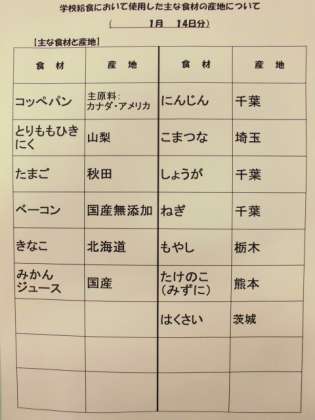 学校給食において使用した主な食材の産地について
( 1月 14日分)
【主な食材と産地】
食 材 産 地 食 材 産 地
コッペパン 主原料:
カナダ・アメリカ にんじん 千葉
とりももひき
にく 山梨 こまつな 埼玉
たまご 秋田 しょうが 千葉
ベーコン 国産無添加 ねぎ 千葉
きなこ 北海道 もやし 栃木
みかん
ジュース 国産 たけのこ
(みずに) 熊本
はくさい 茨城